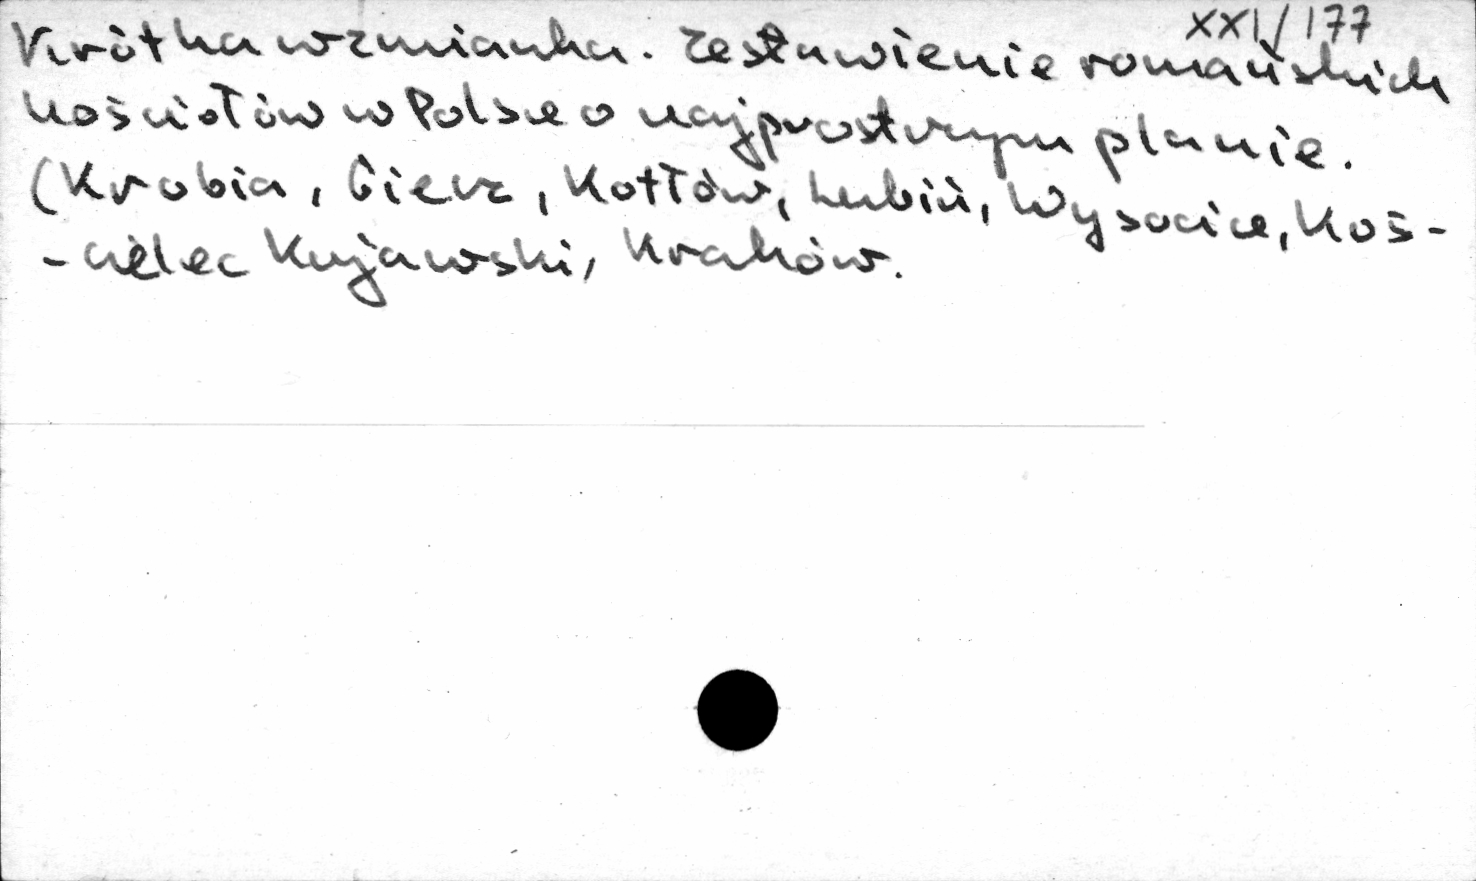 XXI/177
Krótka wzmianka. Zestawienie romańskich
kościołów w Polsce o najprostszym planie.
(Krobia, Giecz, Kotłów, Lubiń, Wysocice, Koś-
-cielec Kujawski, Kraków.